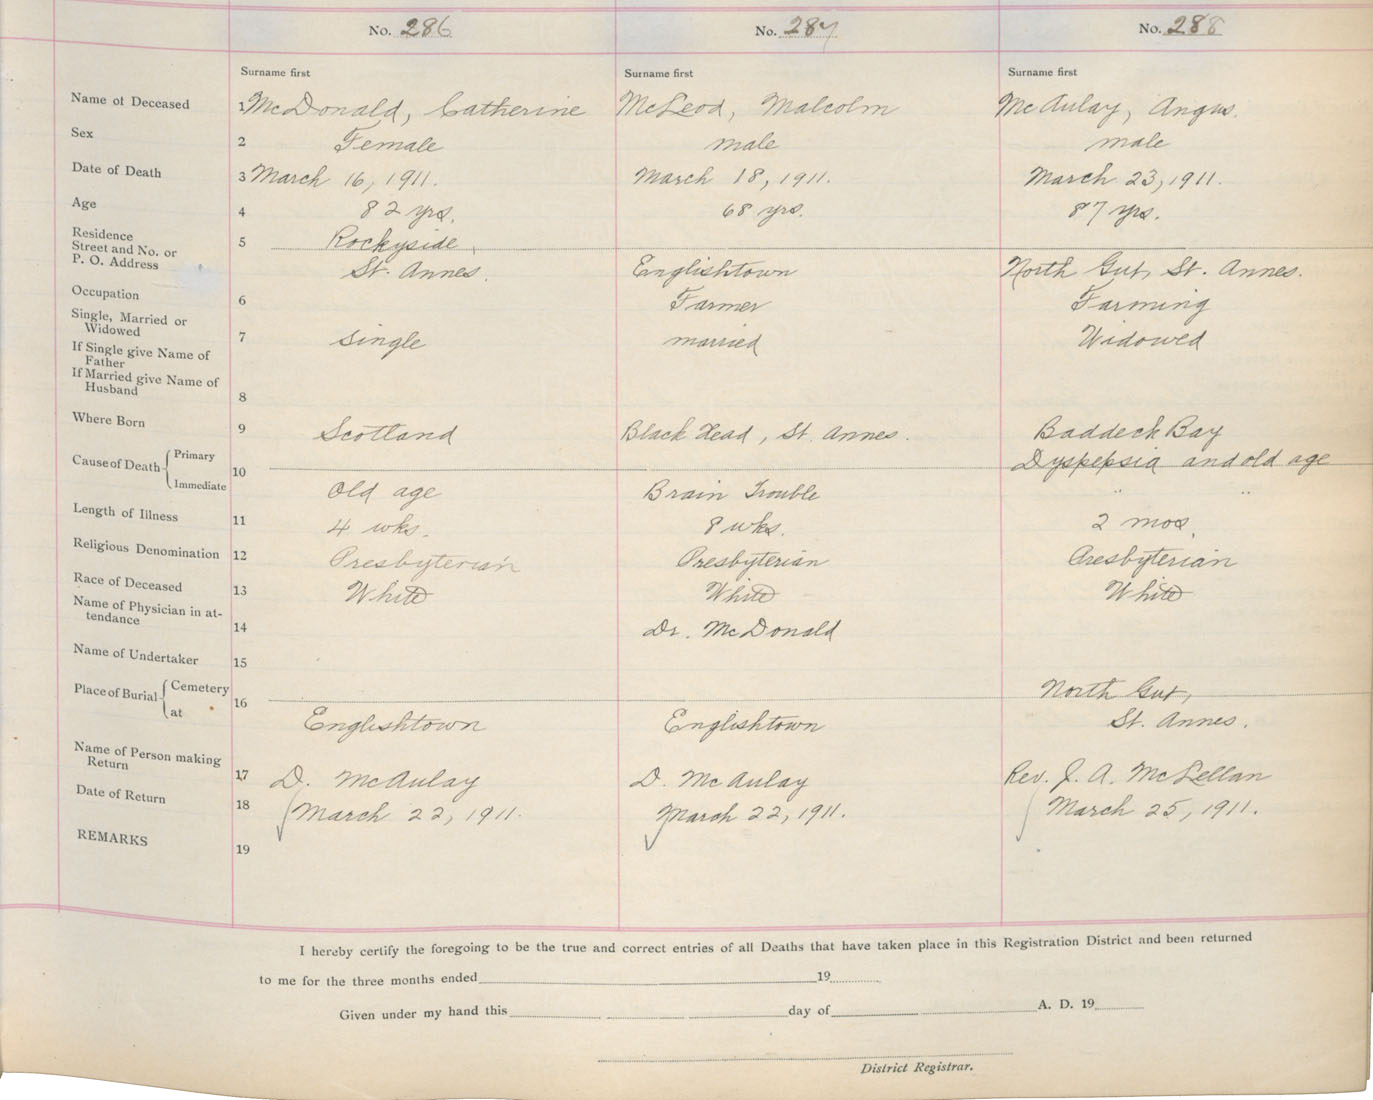 No. 286 No. 287 No. 288
Surname first Surname first Surname first
Name of Deceased 1 McDonald, Catherine McLeod, Malcolm McAulay, Angus.
Sex 2 Female male male
Date of Death 3 March 16, 1911. March 18, 1911. March 23, 1911.
Age 4 82 yrs. 68 yrs. 87 yrs.
Residence
Street and No. or 5 Rockyside,
P. O. Address St. Annes. Englishtown North Gut, St. Annes.
Occupation 6 Farmer Farming
Single, Married or
Widowed 7 single married Widowed
If Single give Name of
Father
If Married give Name of
Husband 8
Where Born 9 Scotland Black Head, St. Annes. Baddeck Bay
Cause of Death { Primary 10 Dyspepsia and old age
Immediate Old age Brain Trouble " "
Length of Illness 11 4 wks. 8 wks. 2 mos.
Religious Denomination 12 Presbyterian Presbyterian Presbyterian
Race of Deceased 13 White White White
Name of Physician in at-
tendance 14 Dr. McDonald
Name of Undertaker 15
Place of Burial { Cemetery 16 North Gut,
at Englishtown Englishtown St. Annes.
Name of Person making
Return 17 D. McAulay D. McAulay Rev. J. A. McLellan
Date of Return 18 March 22, 1911. March 22, 1911. March 25, 1911.
REMARKS 19
I hereby certify the foregoing to be the true and correct entries of all Deaths that have taken place in this Registration District and been returned
to me for the three months ended 19
Given under my hand this day of A. D. 19
District Registrar.